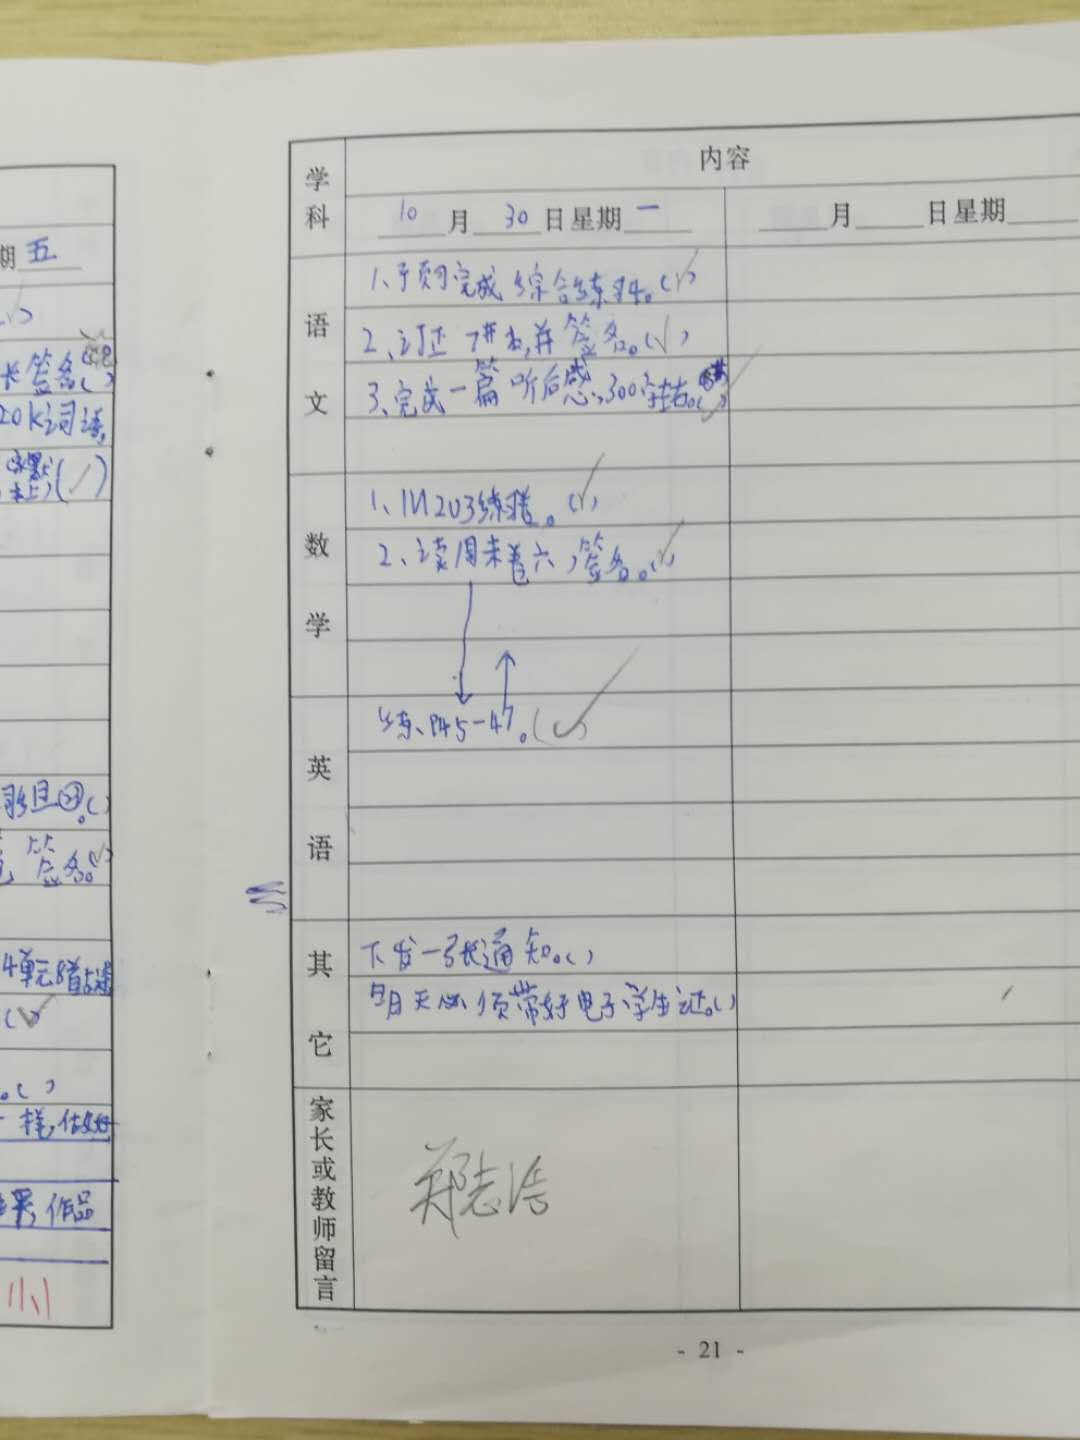 期五
长签名()
20k词语,
(✓)
签名
4单元8首古诗
(✓)
。()
一样,
作品
学科
内容
10月30日星期一
月 日星期
语文
1、预习完成综合练习4。(✓)
2、订正 ,并签名。(✓)
3、完成一篇听后感,300字左右。
数学
1、 练习卷。(✓)
2、读周末卷六,签名。(✓)
英语
练、P45-47。(✓)
其它
下发一张通知。()
明天必须带好电子学生证。()
家长或教师留言
郑志浩
- 21 -